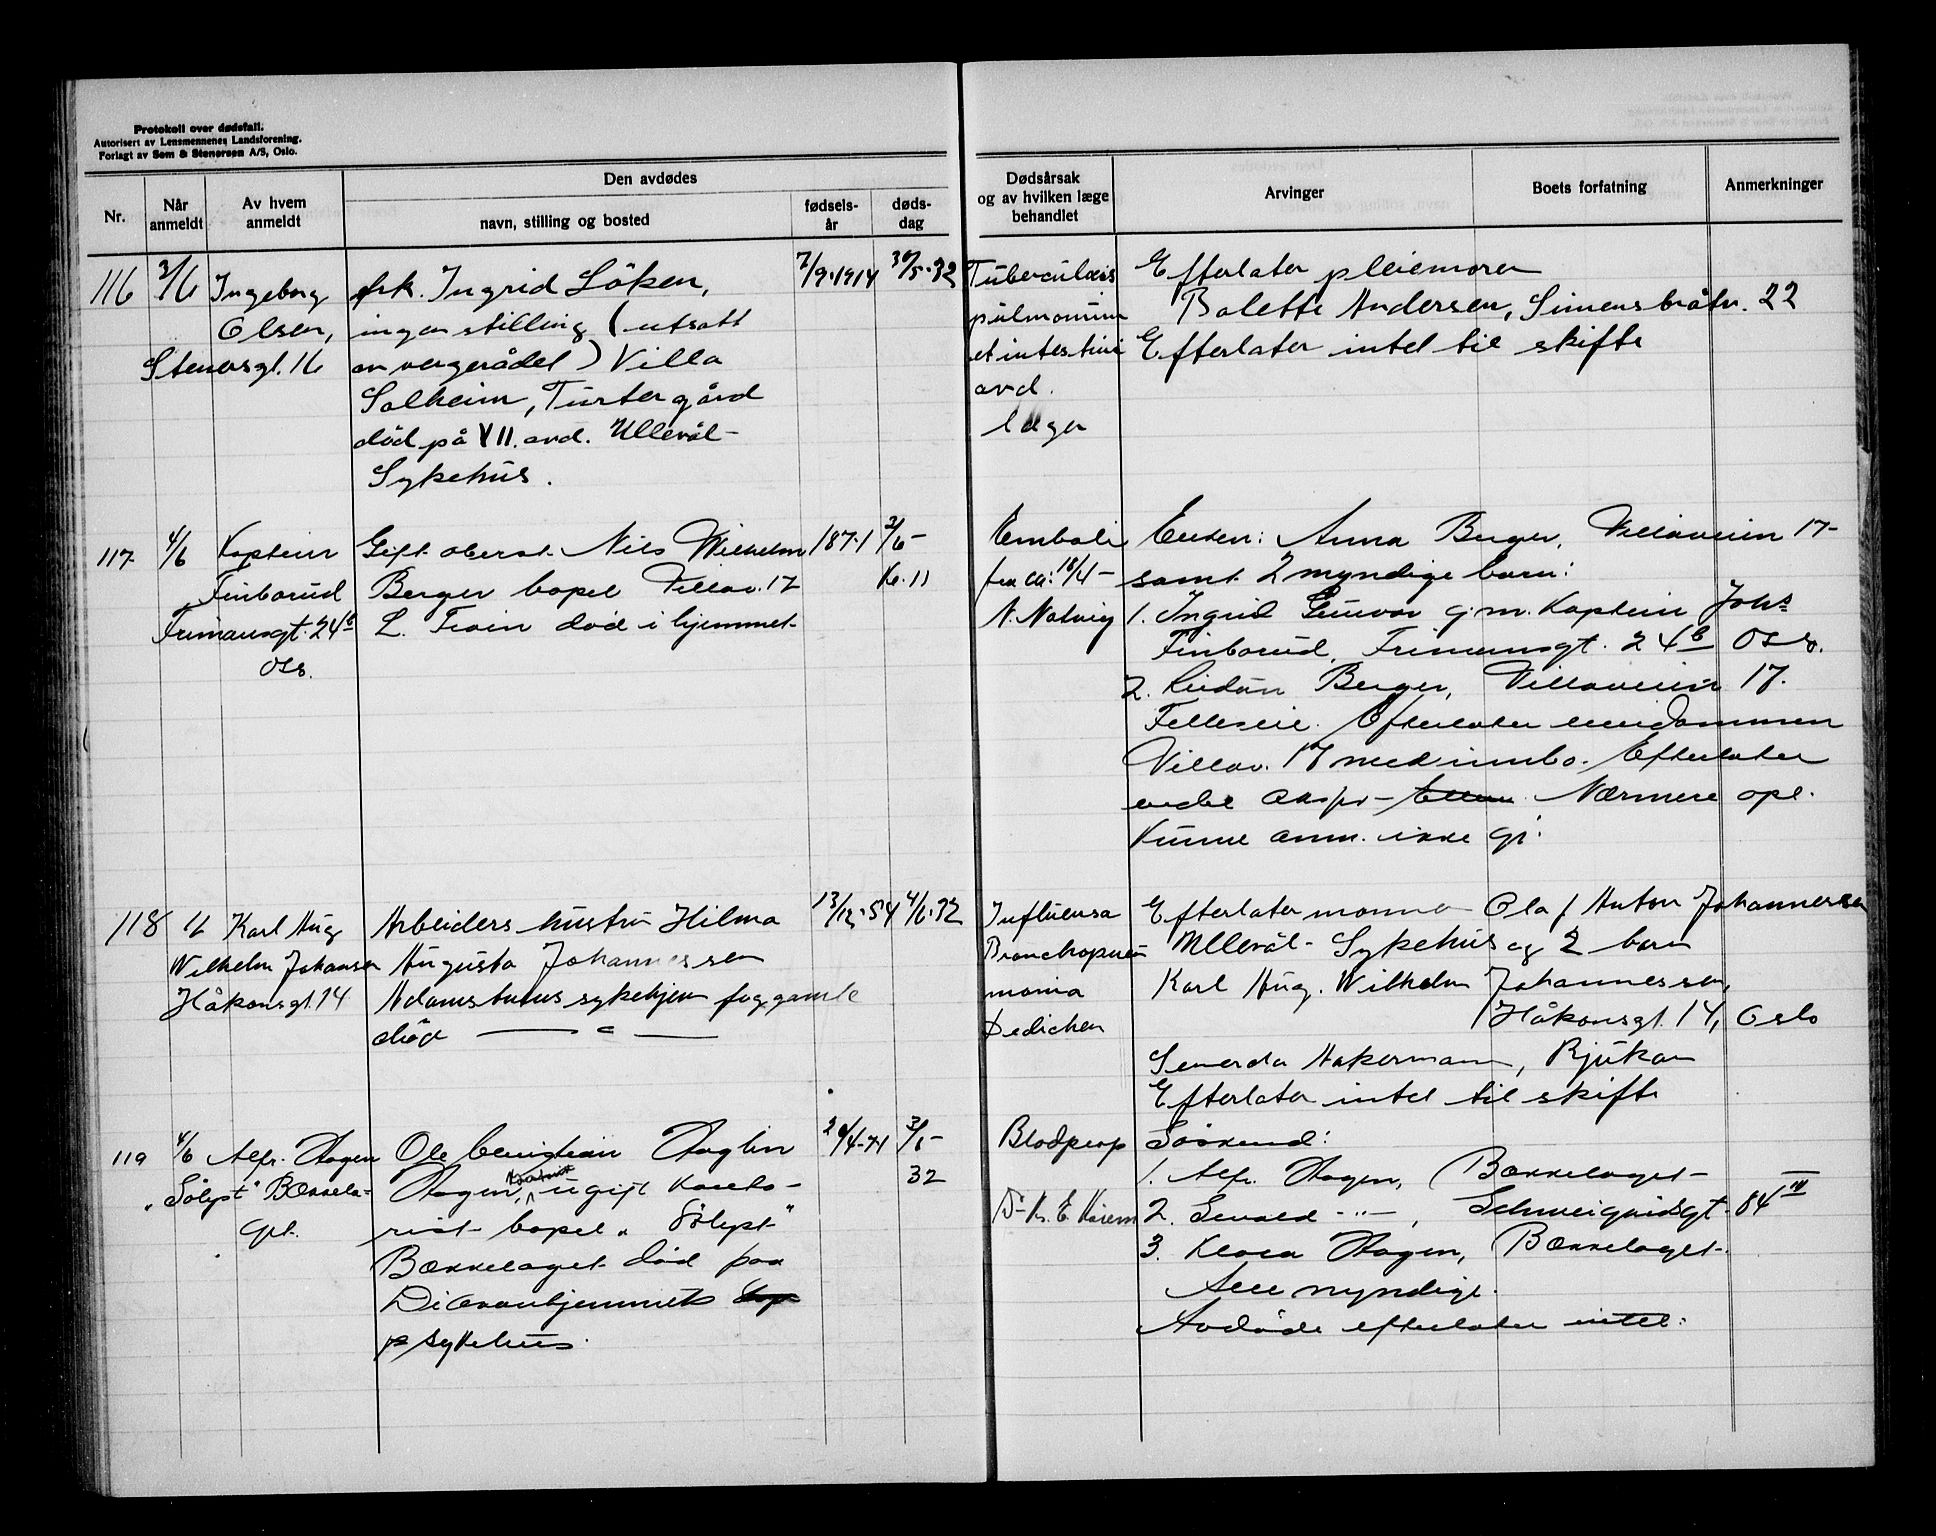 Protokoll over dødsfall.
Autorisert av Lensmennenes Landsforening.
Forlagt av Sem & Stenersen A/S, Oslo.
Nr.
Når anmeldt
Av hvem anmeldt
Den avdødes
navn, stilling og bosted
fødsels-år
døds-dag
Dødsårsak og av hvilken læge behandlet
Arvinger
Boets forfatning
Anmerkninger
116 2/6 Ingeborg
Olsen,
Stenersgt. 16
frk. Ingrid Löken,
ingen stilling (utsatt
av vergerådet) Villa
Solheim, Turtergård
död på VII. avd. Ullevål
Sykehus.
7/9-1914
30/5-32
Tuberculosis
pulmonum
et intestini
avd.
læge
Efterlater pleiemoren
Bolette Andersen, Simensbråtv. 22
Efterlater intet til skifte
117 4/6 Kaptein
Finborud
Frimansgt. 24b
Oslo.
Gift oberst Nils Wilhelm
Berger bopel Villav. 17
L. Froen död i hjemmet
1871
2/6-
kl. 11
Emboli
fra ca: 18/4-
N. Natvig
Enken: Anna Berger, Villaveien 17-
samt 2 myndige barn:
1. Ingrid Gunvor g.m. Kaptein Johs
Finborud, Frimansgt. 24b Oslo.
2. Berger, Villaveien 17.
Felleseie. Efterlater eiendommen
Villav. 17 med innbo. Efterlater
endel Nærmere opl.
kunne anm. ikke gi.
118 4/6 Karl Aug
Wilhelm Johansen
Håkonsgt. 14
Arbeiders hustru Hilma
Augusta Johannessen
Adamstuens sykehjem for gamle
död — " —
13/12-54
4/6-32
Influensa
Bronchopneu
monia
Dedichen
Efterlater mannen Olaf Anton Johannessen
Ullevål Sykehus og 2 barn
Karl Aug. Wilhelm Johannessen,
Håkonsgt. 14, Oslo
Akermann, Rjukan
Efterlater intet til skifte
119 4/6 Alfr. Hagen
"Sölyst" Bækkela-
get.
Ole Christian Haglin
Hagen, ugift
bopel "Sölyst"
Bækkelaget död paa
Diakonhjemmets
sykehus.
24/4-71
3/6-
32
Blodprop
Dr K. E.
Söskend:
1. Alfr. Hagen, Bækkelaget
2. Sevald -"- , Schweigaardsgt. 84 IV
3. Klara Hagen, Bækkelaget.
Alle myndige.
Avdöde efterlater intet.